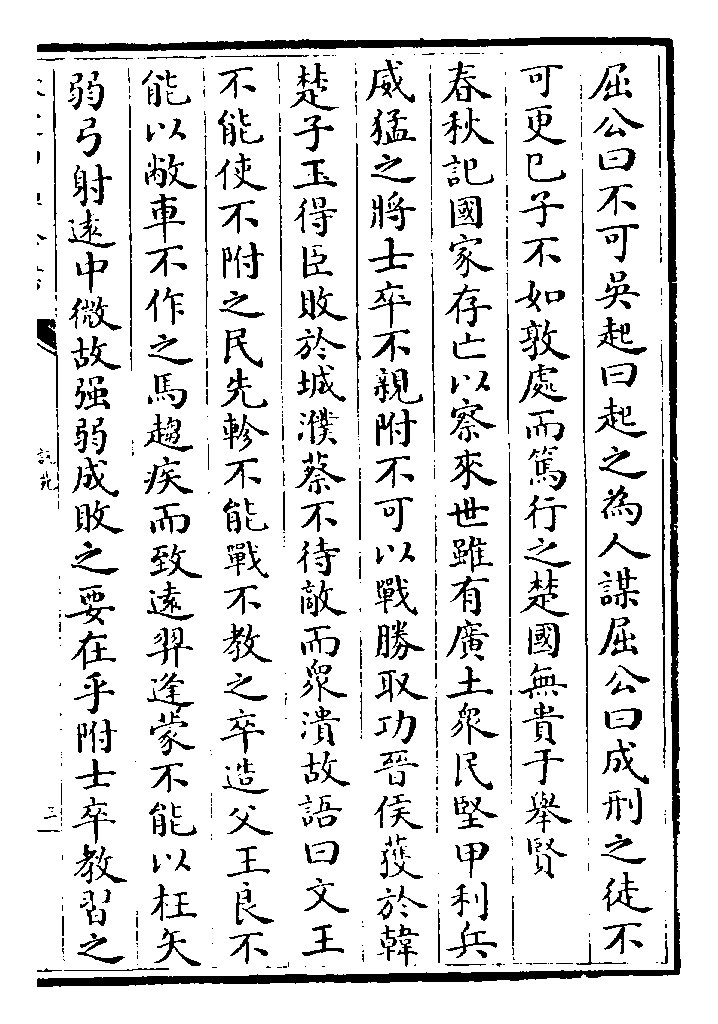 屈公曰不可吳起曰起之為人謀屈公曰成刑之徒不
可更已子不如敦處而篤行之楚國無貴于舉賢
春秋記國家存亡以察來世雖有廣土衆民堅甲利兵
威猛之將士卒不親附不可以戰勝取功晉侯獲於韓
楚子玉得臣敗於城濮蔡不待敵而衆潰故語曰文王
不能使不附之民先軫不能戰不教之卒造父王良不
能以敝車不作之馬趨疾而致遠羿逄蒙不能以枉矢
弱弓射遠中微故强弱成敗之要在乎附士卒教習之
說苑
三